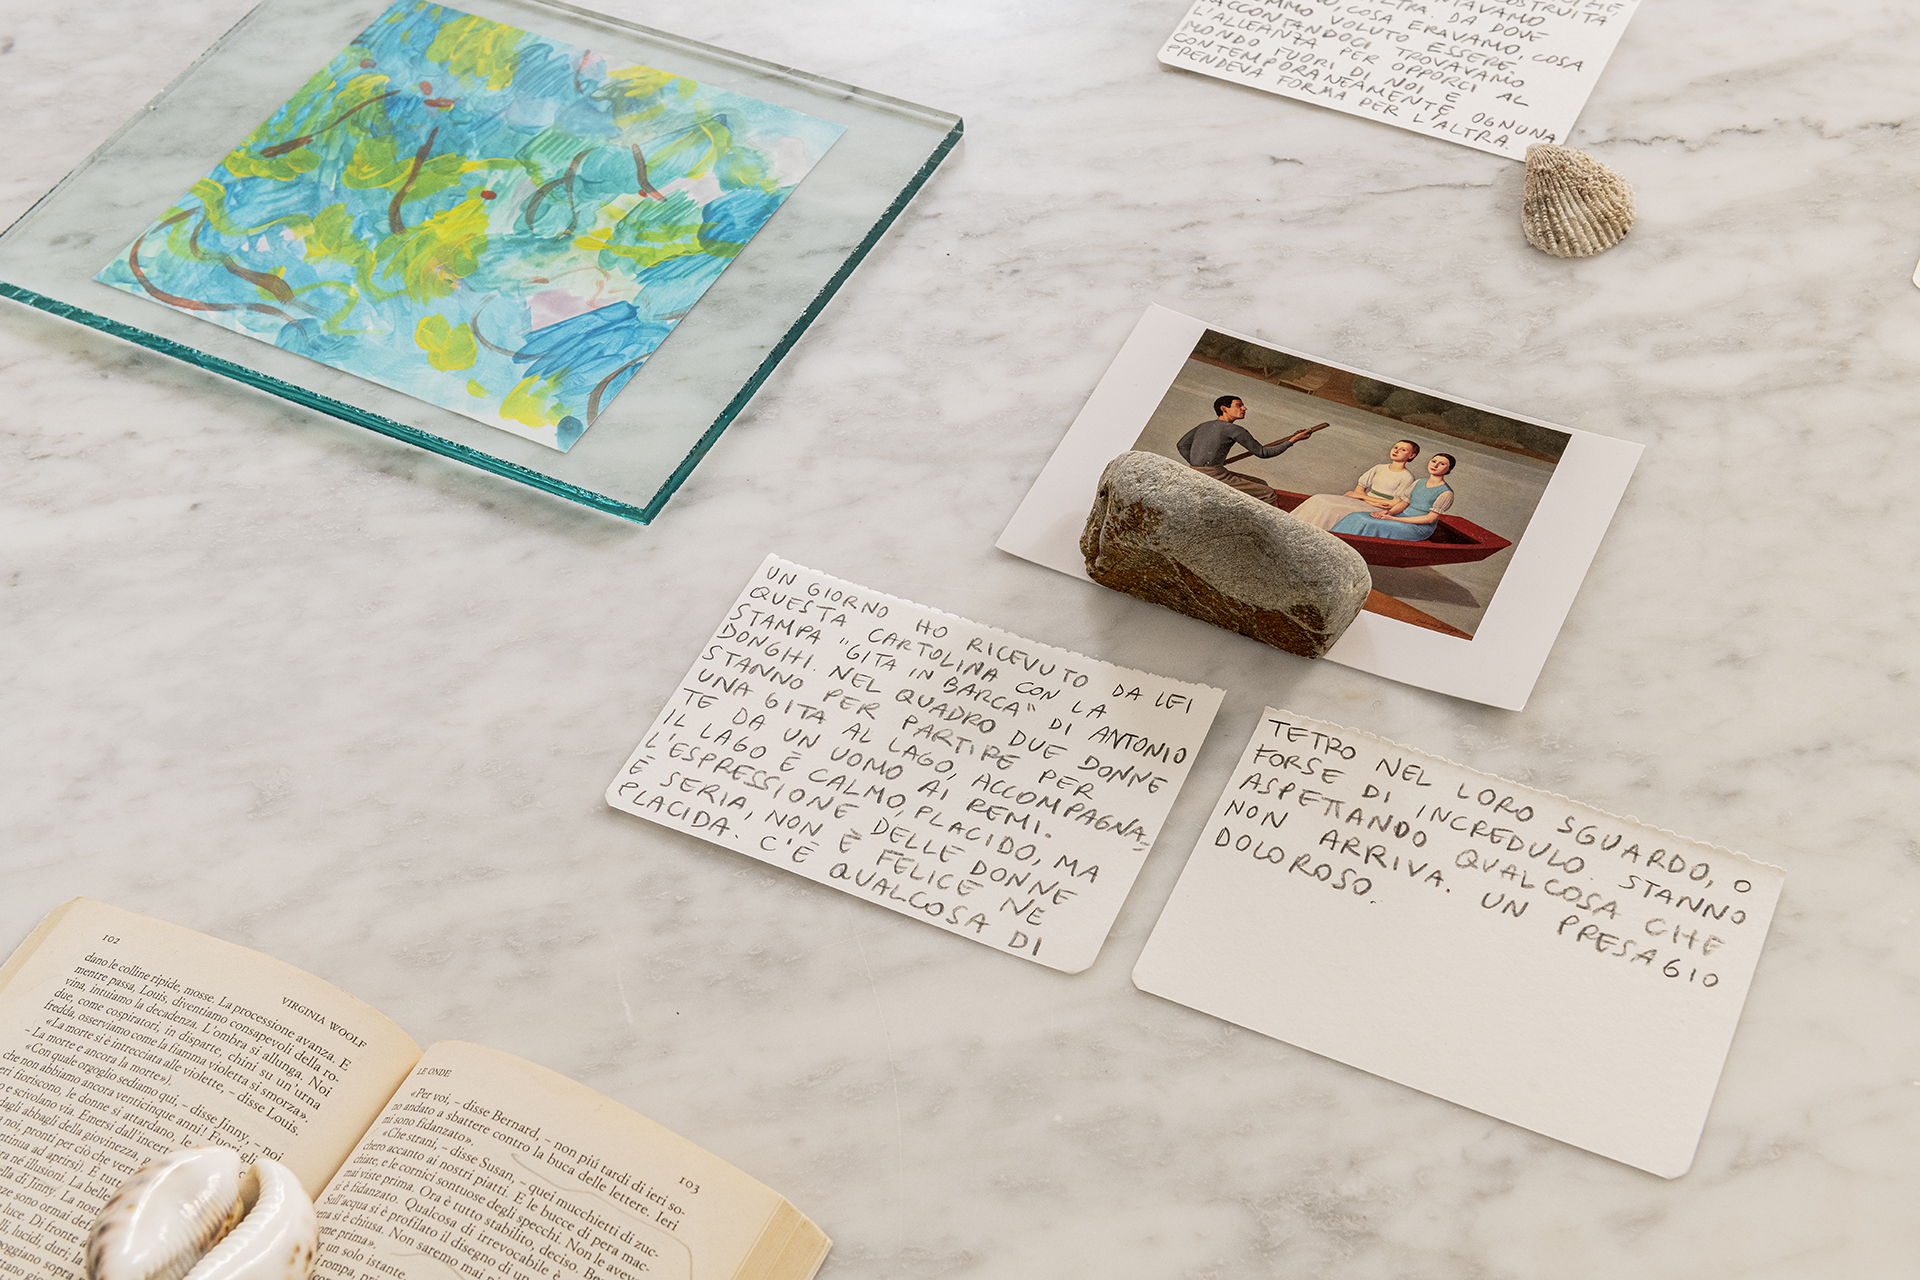 COSTRUITA
ALTRA. DA DOVE
COSA ERAVAMO, COSA
VOLUTO ESSERE.
RACCONTANDOCI TROVAVAMO
L'ALLEANZA PER OPPORCI AL
MONDO FUORI DI NOI E
CONTEMPORANEAMENTE OGNUNA
PRENDEVA FORMA PER L'ALTRA.
UN GIORNO HO RICEVUTO DA LEI
QUESTA CARTOLINA CON LA
STAMPA "GITA IN BARCA" DI ANTONIO
DONGHI. NEL QUADRO DUE DONNE
STANNO PER PARTIRE PER
UNA GITA AL LAGO, ACCOMPAGNA-
TE DA UN UOMO AI REMI.
IL LAGO È CALMO, PLACIDO, MA
L'ESPRESSIONE DELLE DONNE
È SERIA, NON È FELICE NE
PLACIDA. C'È QUALCOSA DI
TETRO NEL LORO SGUARDO, O
FORSE DI INCREDULO. STANNO
ASPETTANDO QUALCOSA CHE
NON ARRIVA. UN PRESAGIO
DOLOROSO.
102
VIRGINIA WOOLF
dano le colline ripide, mosse. La processione avanza. E
mentre passa, Louis, diventiamo consapevoli della ro-
vina, intuiamo la decadenza. L'ombra si allunga. Noi
due, come cospiratori, in disparte, chini su un'urna
fredda, osserviamo come la fiamma violetta si smorza».
«La morte si è intrecciata alle violette, – disse Louis.
– La morte e ancora la morte»).
«Con quale orgoglio sediamo qui, – disse Jinny, – noi
che non abbiamo ancora venticinque anni! Fuori gli
fioriscono, le donne si attardano, le
e scivolano via. Emersi dall'incert
dagli abbagli della giovinezza,
noi, pronti per ciò che
ad aprirsi). È
né illusioni. La belle
di Jinny. La nost
sono ormai
luce. Di fronte
lucidi, duri; la
sopra
LE ONDE
103
«Per voi, – disse Bernard, – non piú tardi di ieri so-
no andato a sbattere contro la buca delle lettere. Ieri
mi sono fidanzato».
«Che strani, – disse Susan, – quei mucchietti di zuc-
chero accanto ai nostri piatti. E le bucce di pera mac-
chiate, e le cornici sontuose degli specchi. Non le avevo
mai viste prima. Ora è tutto stabilito, deciso. Ber
si è fidanzato. Qualcosa di irrevocabile è
Sull'acqua si è profilato il disegno di un
si è chiusa. Non saremo mai
come prima».
un solo istante.
rompa,